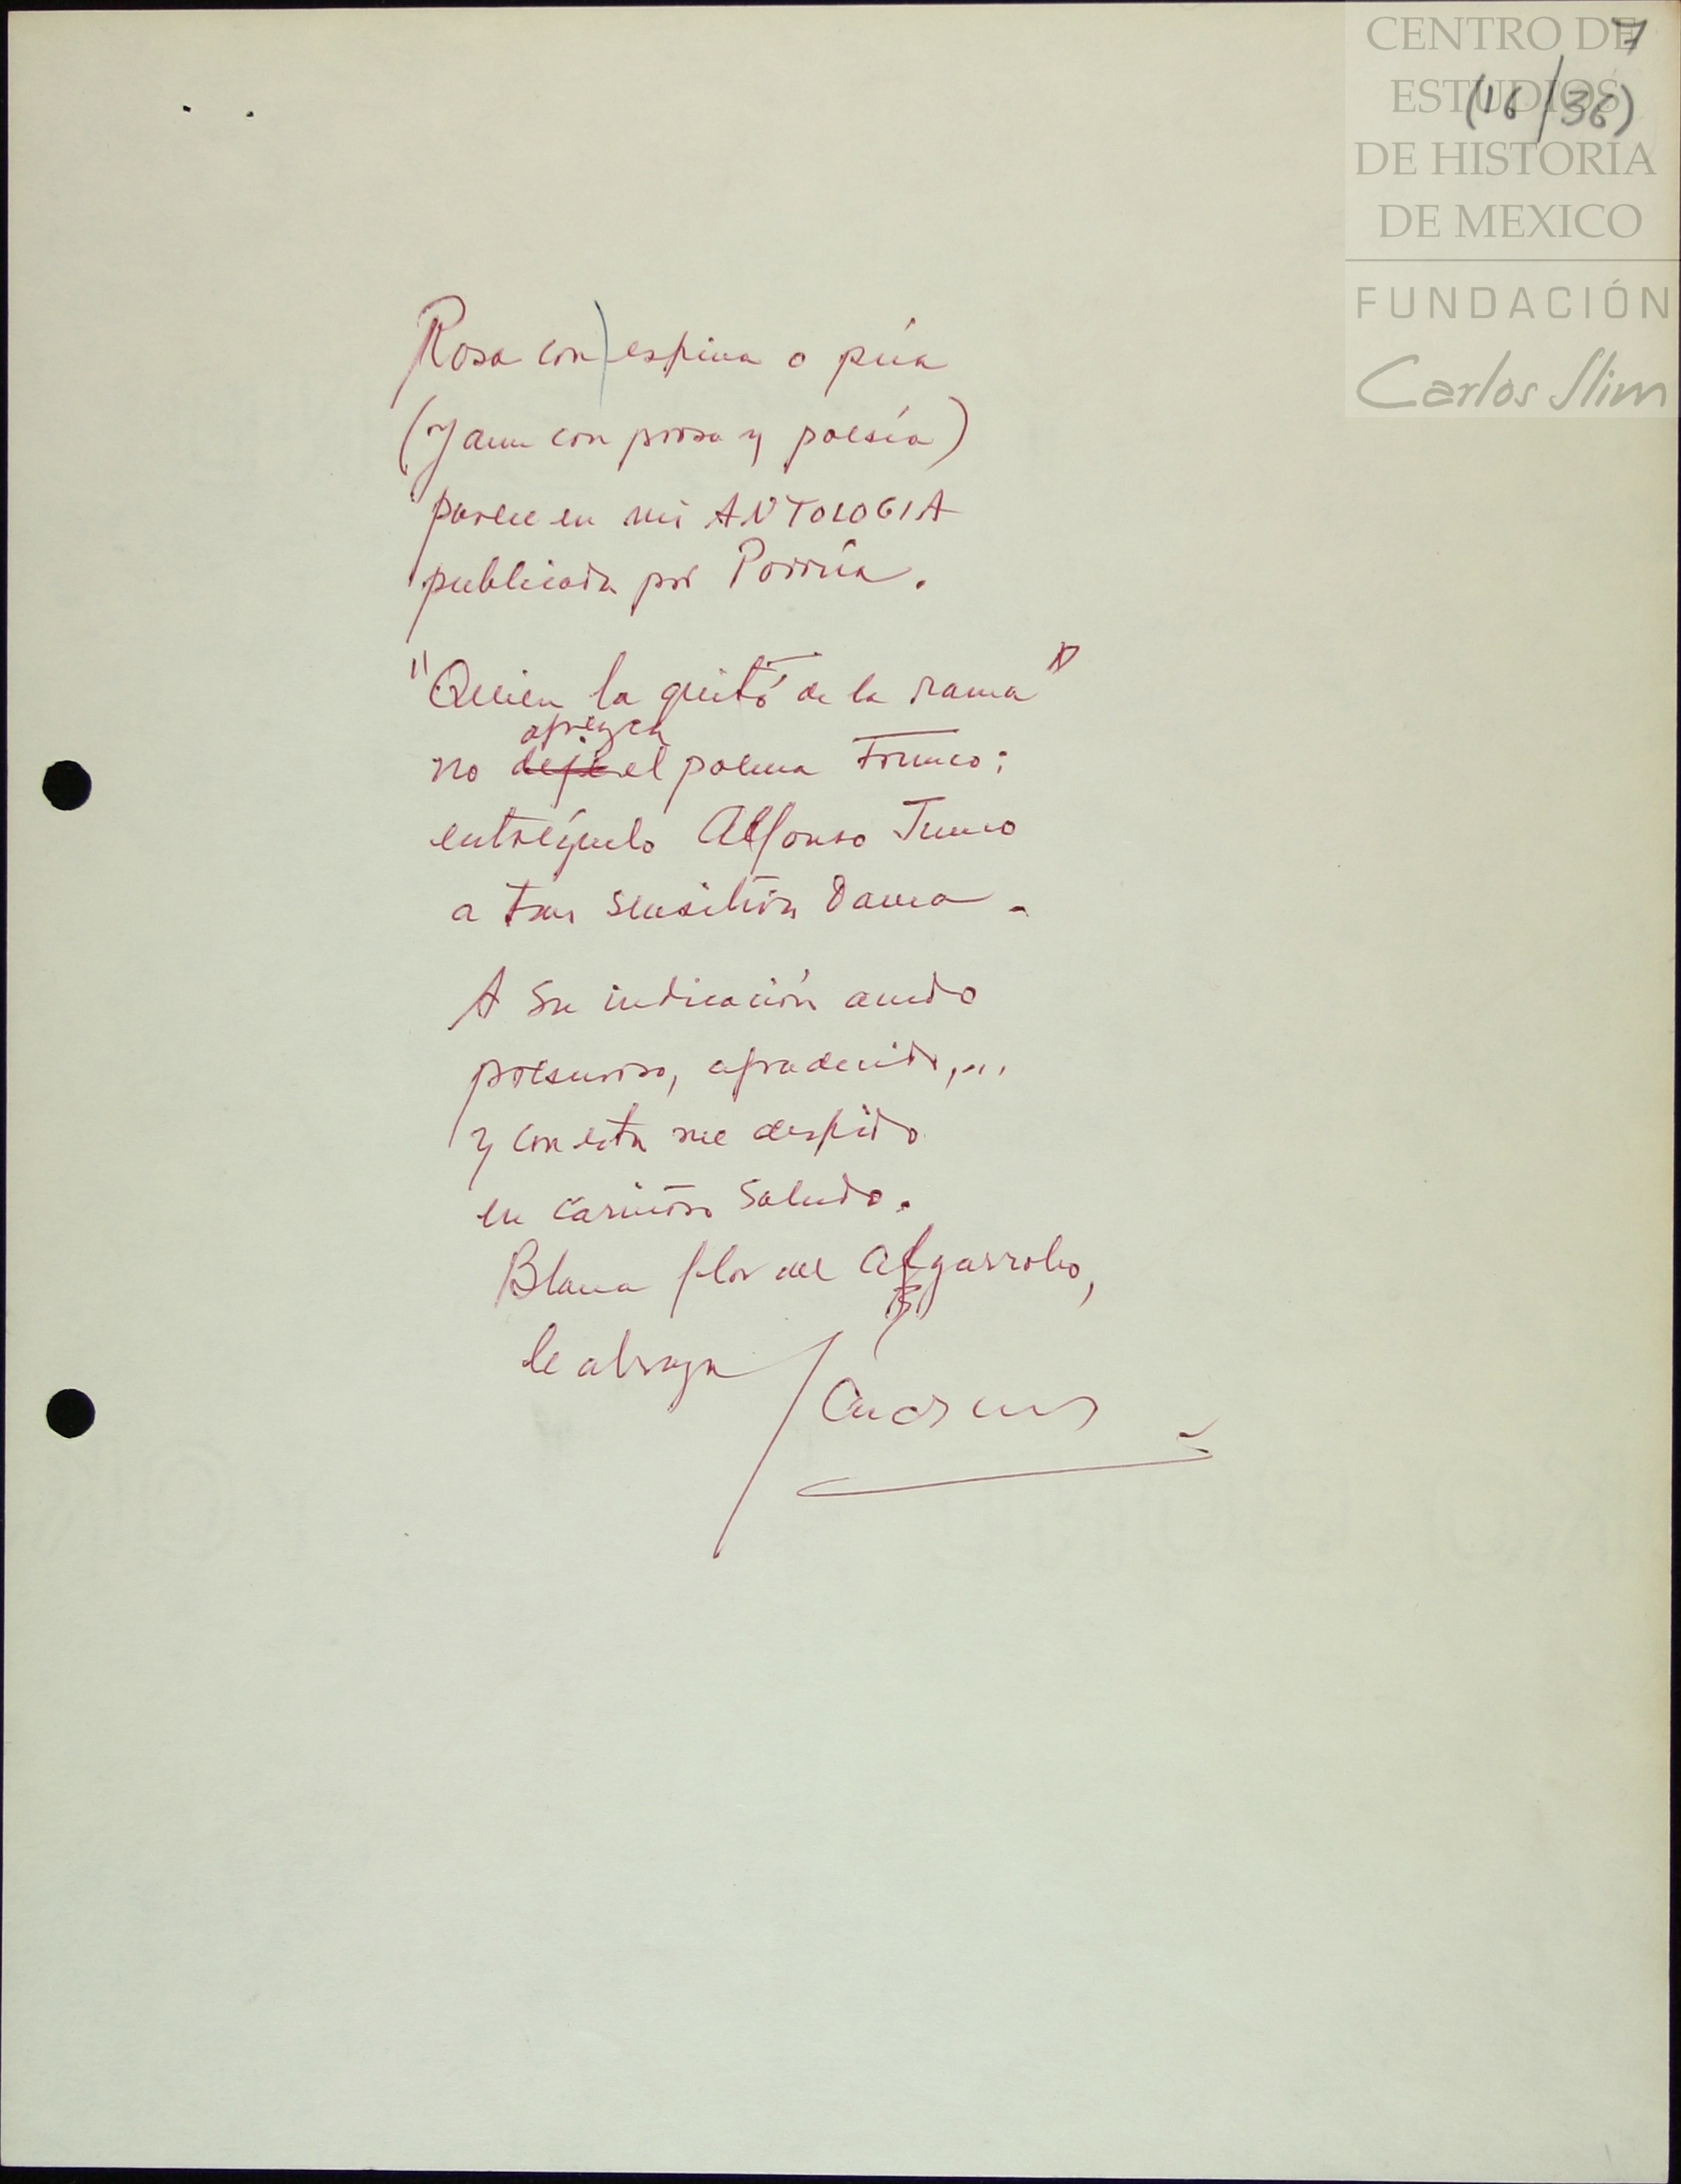 CENTRO DE
ESTUDIOS
DE HISTORIA
DE MEXICO
FUNDACIÓN
Carlos Slim
7
(16/36)
Rosa con espina o púa
(y aun con prosa y poesía)
parece en mi ANTOLOGIA
publicada por Porrúa.
"Quien la quitó de la rama"
ofrezca
no deje el poema trunco;
entréguelo Alfonso Junco
a tan sensitiva Dama.
A su indicación acudo
presuroso, agradecido,...
y con esta me despido
en cariñoso saludo.
Blanca flor del Algarrobo,
le abraza